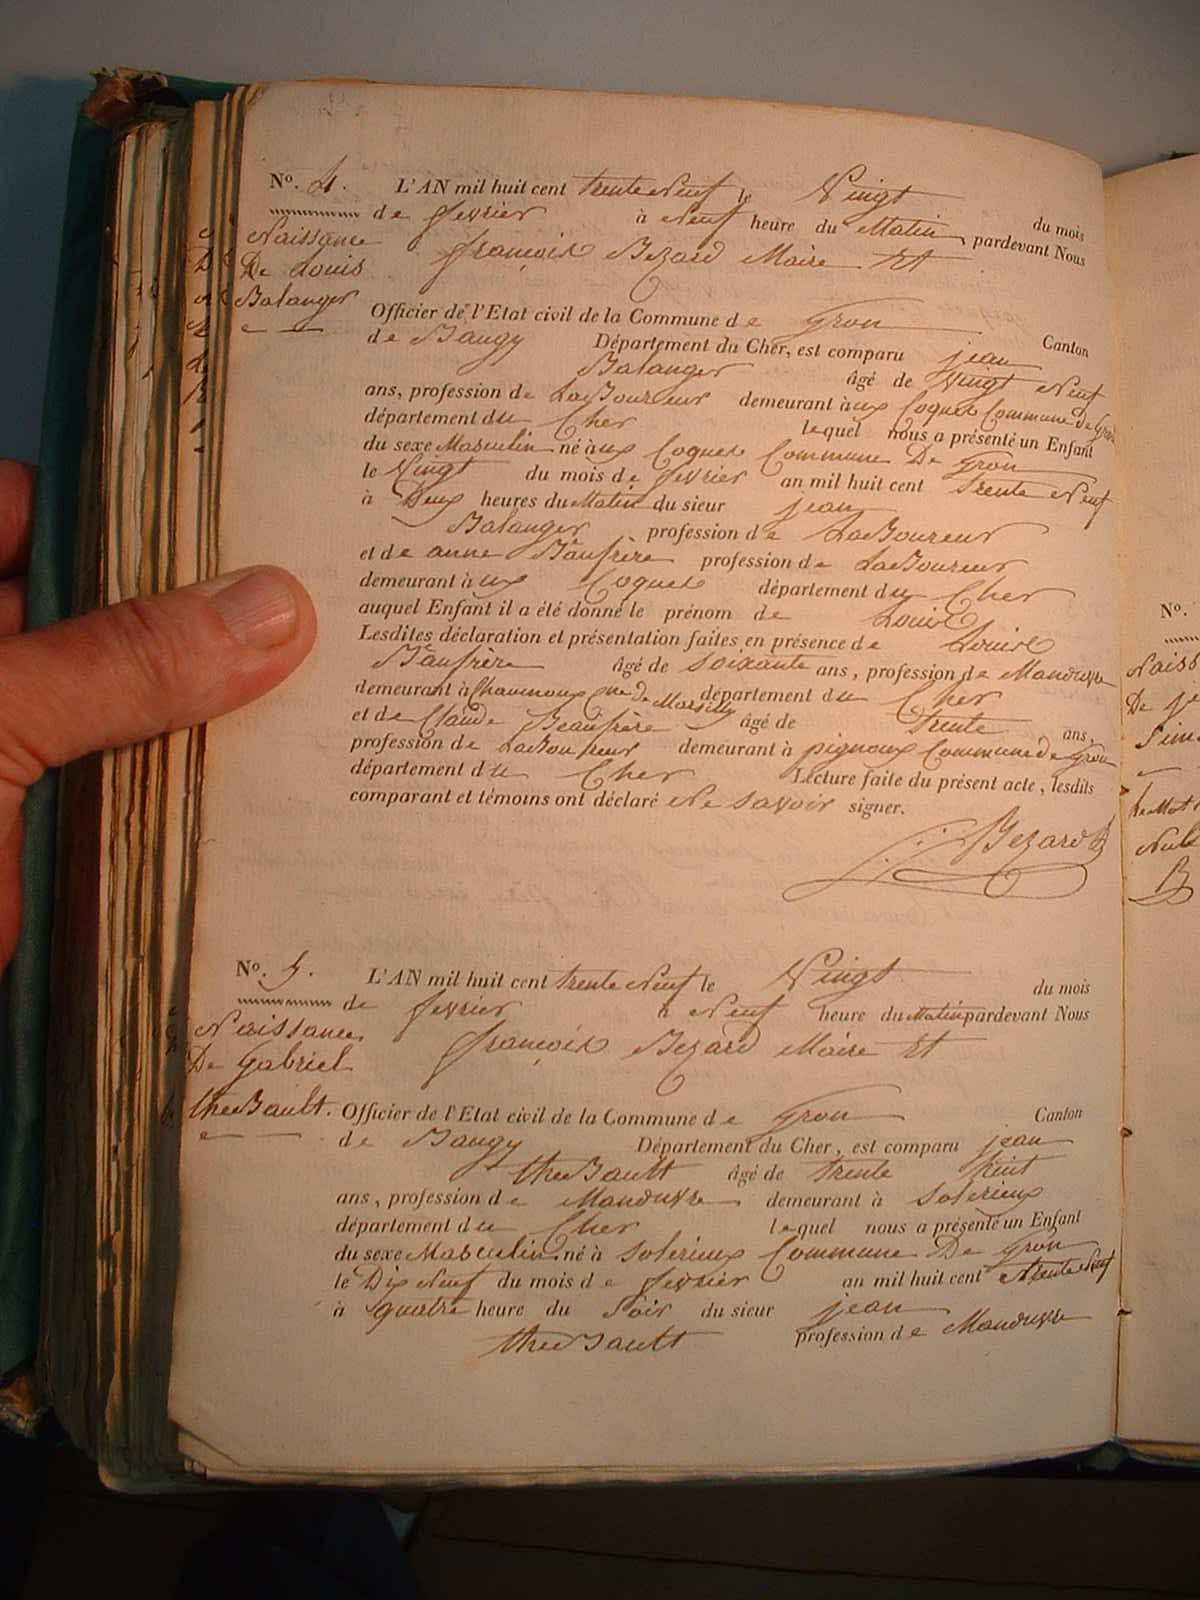 No. 4.
Naissance
De Louis
Balanger
L'AN mil huit cent trente Neuf le Vingt du mois
de fevrier à Neuf heure du Matin pardevant Nous
françois Bezard Maire Et
Officier de l'Etat civil de la Commune de Gron Canton
de Baugy Département du Cher, est comparu jean
Balanger âgé de Vingt Neuf
ans, profession de LaBoureur demeurant aux Coquet Commune de Gron
département du Cher lequel nous a présenté un Enfant
du sexe Masculin né aux Coquet Commune De Gron
le Vingt du mois de fevrier an mil huit cent trente Neuf
à Deux heures du Matin du sieur jean
Balanger profession de LaBoureur
et de anne Baufrère profession de LaBoureur
demeurant aux Coquet département du Cher
auquel Enfant il a été donné le prénom de Louis
Lesdites déclaration et présentation faites en présence de Louis
Baufrère âgé de soixante ans, profession de Manduvre
demeurant à Chaumoux Cne de Marsilly département du Cher
et de Claude Beaufrère âgé de trente ans,
profession de LaBoureur demeurant à pignoux Commune de Gron
département du Cher Lecture faite du présent acte, lesdits
comparant et témoins ont déclaré Ne savoir signer.
Bezard
No. 5.
Naissance
De Gabriel
theBault.
L'AN mil huit cent trente Neuf le Vingt du mois
de fevrier à Neuf heure du Matin pardevant Nous
françois Bezard Maire Et
Officier de l'Etat civil de la Commune de Gron Canton
de Baugy Département du Cher, est comparu jean
theBault âgé de trente huit
ans, profession de Manduvre demeurant à Solerieux
département du Cher lequel nous a présenté un Enfant
du sexe Masculin né à Solerieux Commune De Gron
le Dix Neuf du mois de fevrier an mil huit cent trente Neuf
à quatre heure du Soir du sieur jean
theBault profession de Manduvre
No.
Naiss
De je
Sim